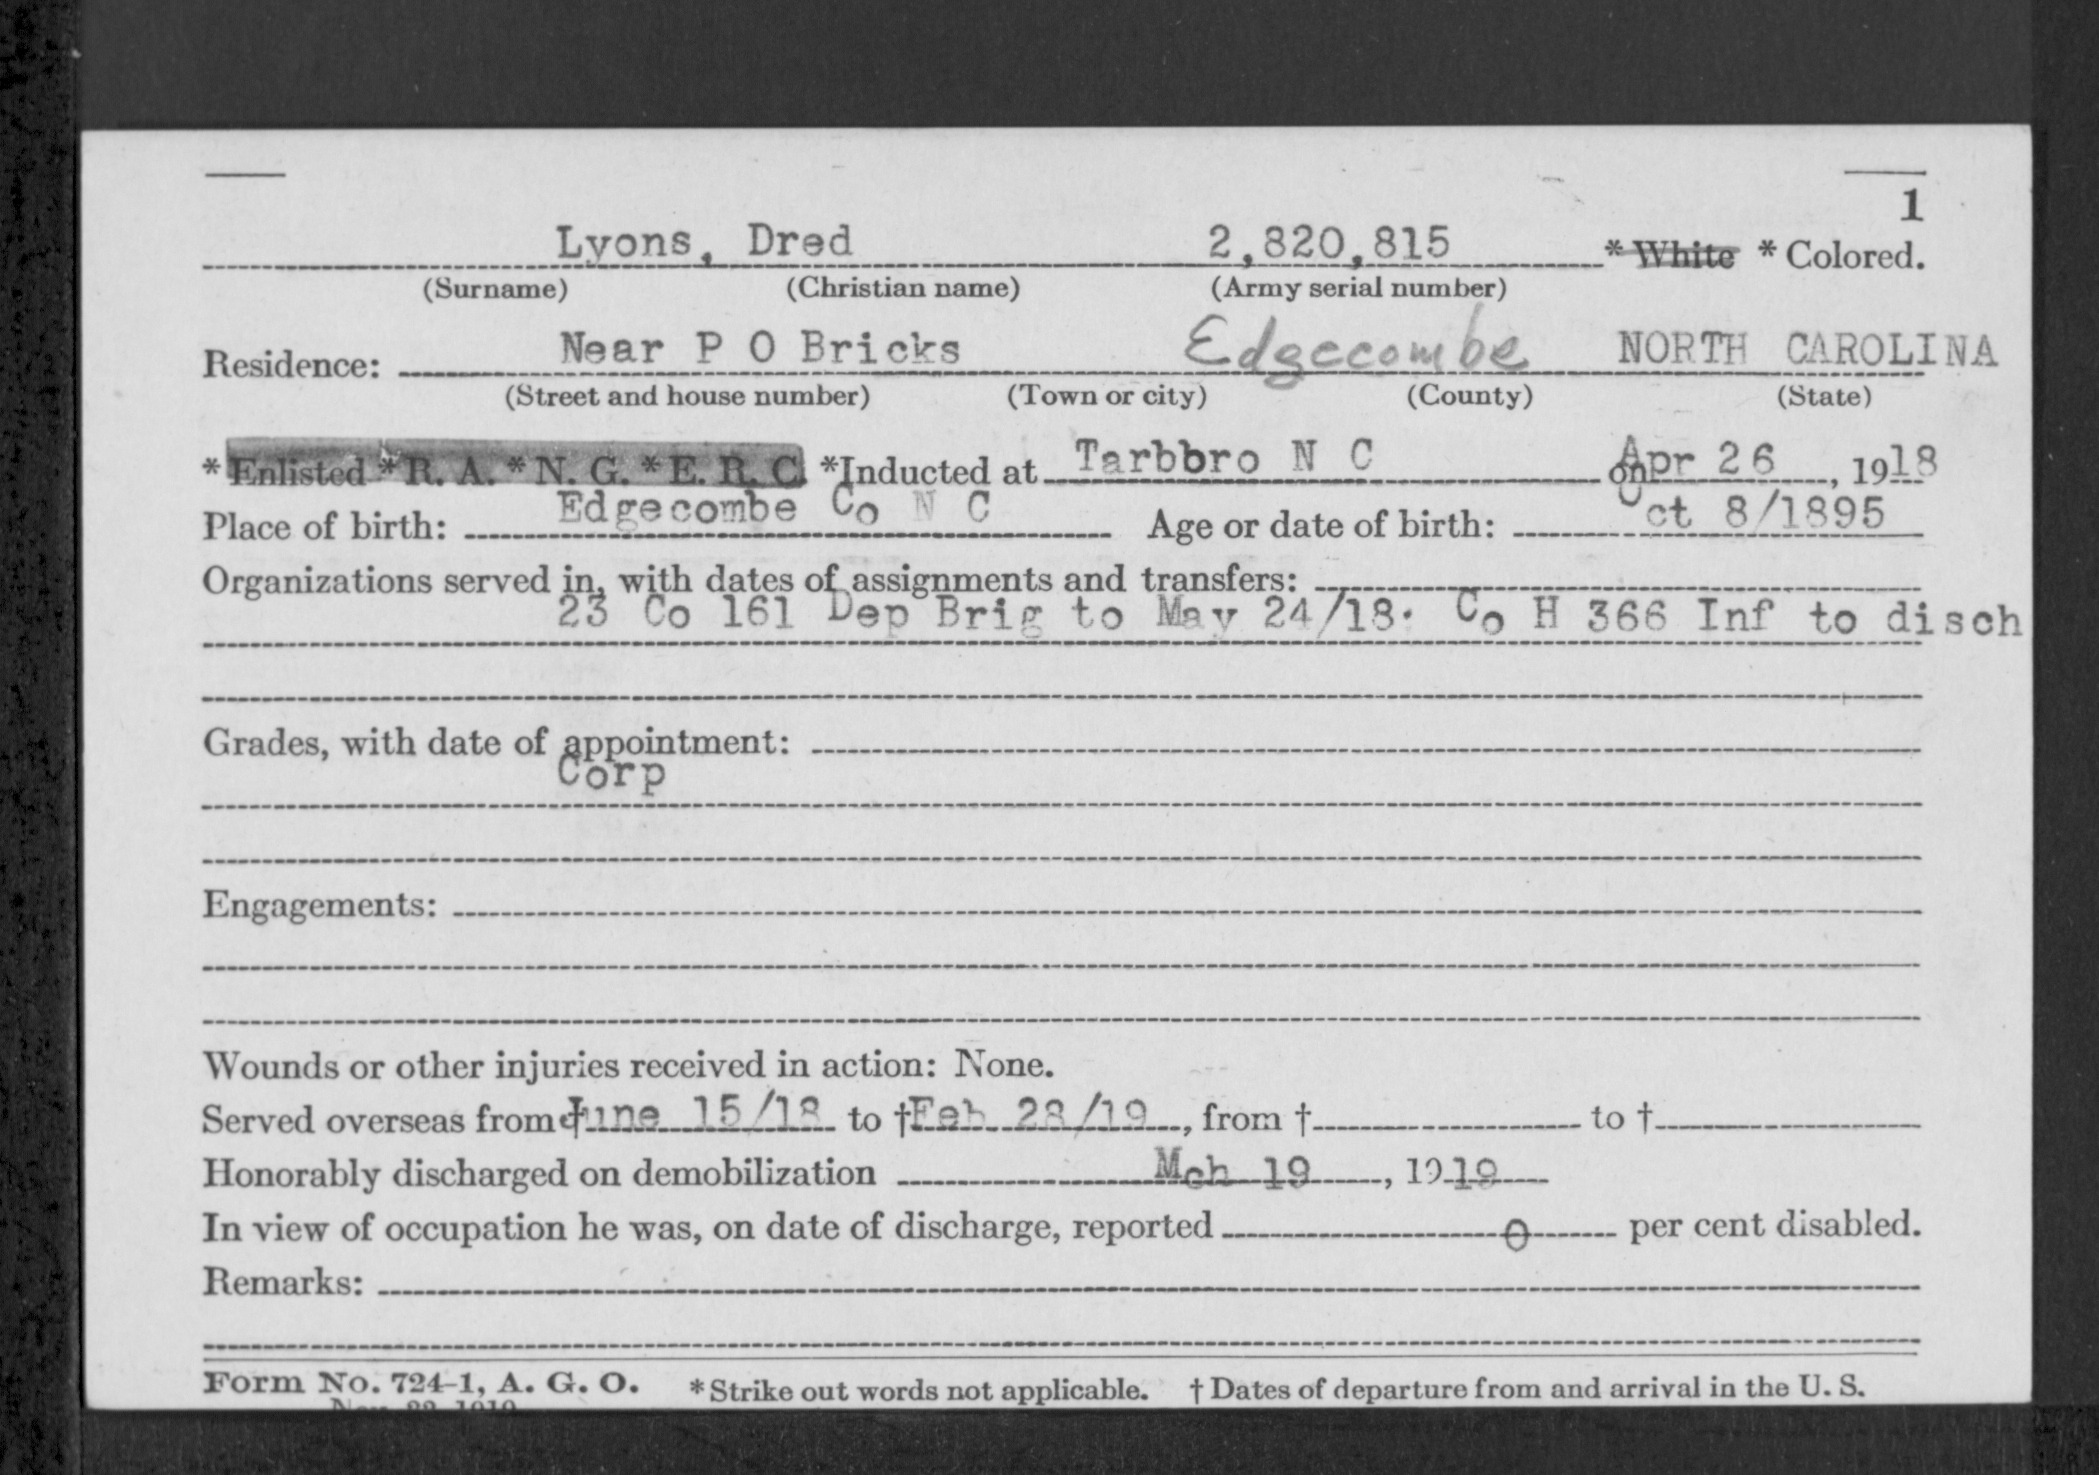 1
Lyons, Dred 2,820,815 * White * Colored.
(Surname) (Christian name) (Army serial number)
Residence: Near P O Bricks Edgecombe NORTH CAROLINA
(Street and house number) (Town or city) (County) (State)
* Enlisted * R. A. * N. G. * E. R. C. *Inducted at Tarbbro N C on Apr 26, 1918
Place of birth: Edgecombe Co N C Age or date of birth: Oct 8/1895
Organizations served in, with dates of assignments and transfers:
23 Co 161 Dep Brig to May 24/18. Co H 366 Inf to disch
Grades, with date of appointment:
Corp
Engagements:
Wounds or other injuries received in action: None.
Served overseas from † June 15/18 to † Feb 28/19, from † to †
Honorably discharged on demobilization Mch 19, 1919
In view of occupation he was, on date of discharge, reported 0 per cent disabled.
Remarks:
Form No. 724-1, A. G. O. * Strike out words not applicable. † Dates of departure from and arrival in the U. S.